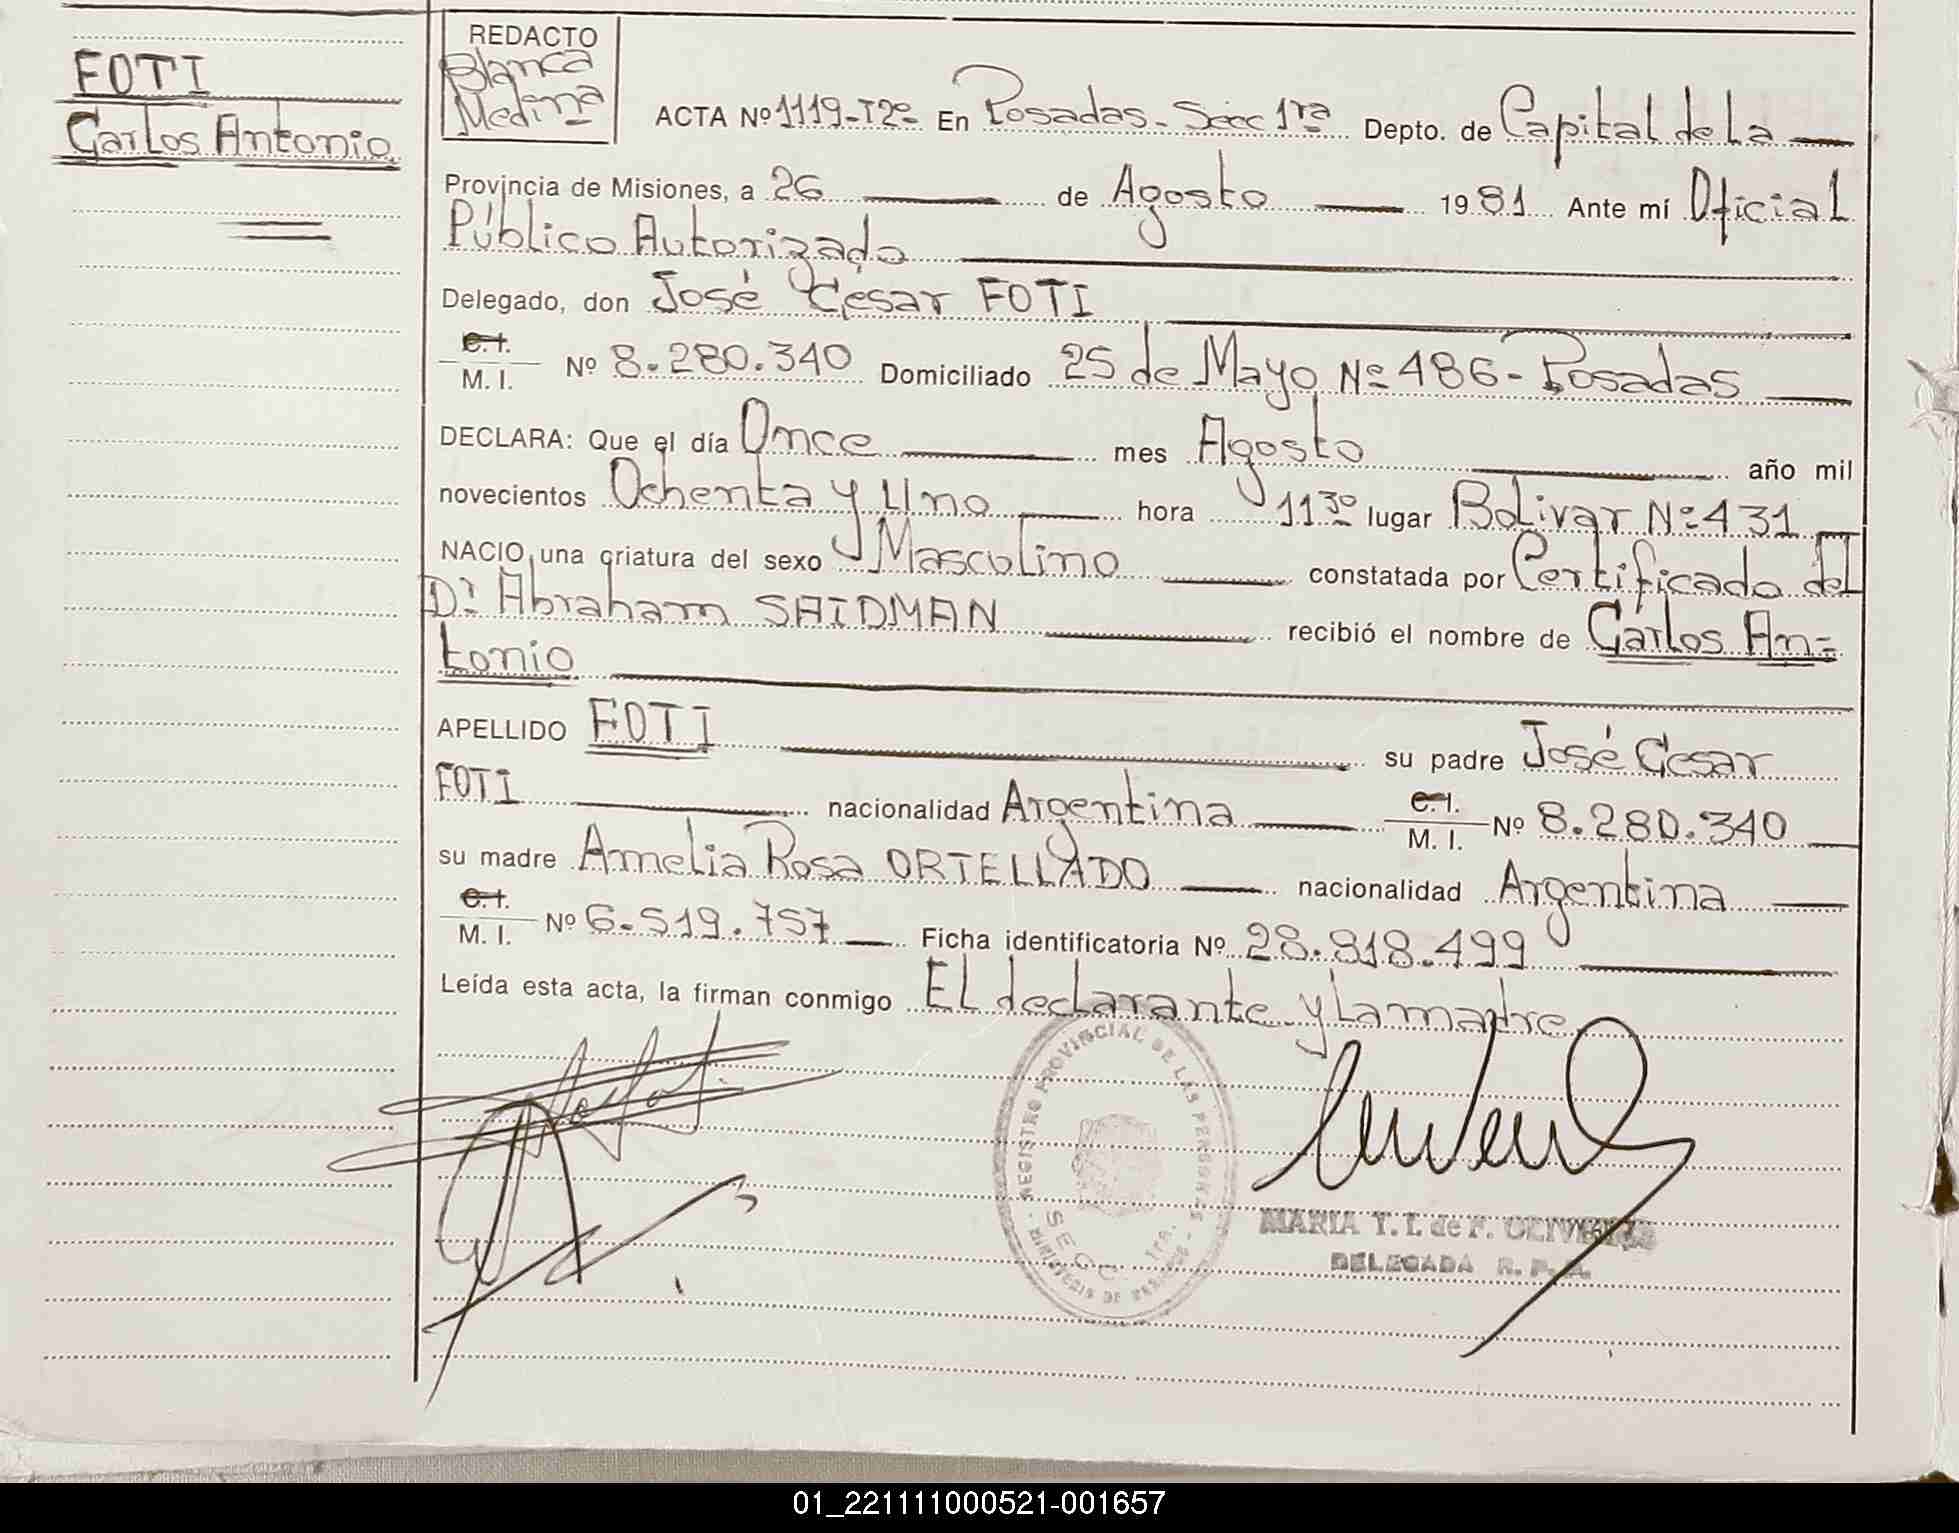 FOTI
Carlos Antonio
REDACTO
Blanca
Medina
ACTA Nº 1119-T2º En Posadas - Secc 1ra Depto. de Capital de La
Provincia de Misiones, a 26 de Agosto 1981 Ante mí Oficial
Público Autorizado
Delegado, don José Cesar FOTI
C.I.
M. I. Nº 8.280.340 Domiciliado 25 de Mayo Nº 486 - Posadas
DECLARA: Que el día Once mes Agosto año mil
novecientos Ochenta y Uno hora 11 30 lugar Bolivar Nº 431
NACIO una criatura del sexo Masculino constatada por Certificado del
Dr. Abraham SAIDMAN recibió el nombre de Carlos An=
tonio
APELLIDO FOTI su padre José Cesar
FOTI nacionalidad Argentina C.I. M. I. Nº 8.280.340
su madre Amelia Rosa ORTELLADO nacionalidad Argentina
C.I.
M. I. Nº 6.519.757 Ficha identificatoria Nº 28.818.499
Leída esta acta, la firman conmigo El declarante y La madre
REGISTRO PROVINCIAL DE LAS PERSONAS
SECC. 1ra.
MARIA T. I. de F. OLIVEIRA
DELEGADA R. P. P.
01_221111000521-001657